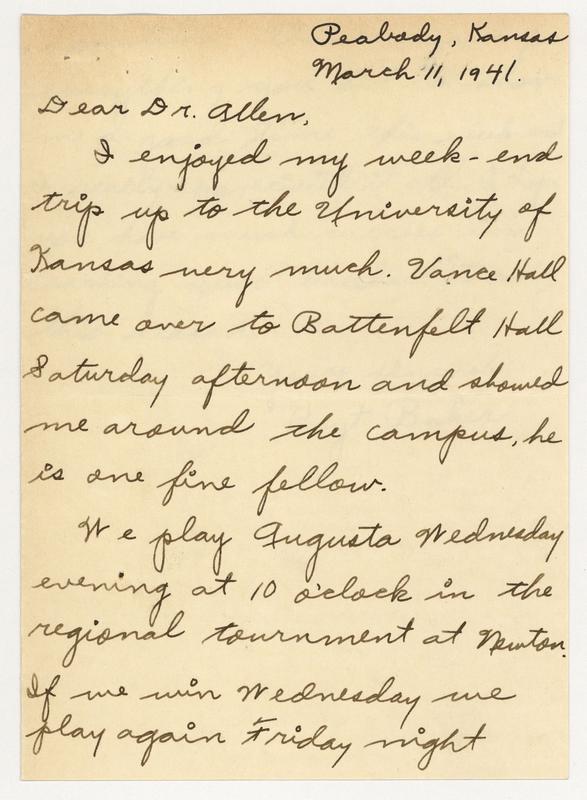 Peabody, Kansas
March 11, 1941.
Dear Dr. Allen,
I enjoyed my week-end
trip up to the University of
Kansas very much. Vance Hall
came over to Battenfelt Hall
Saturday afternoon and showed
me around the campus, he
is one fine fellow.
We play Augusta Wednesday
evening at 10 o'clock in the
regional tournment at Newton.
If we win Wednesday we
play again Friday night